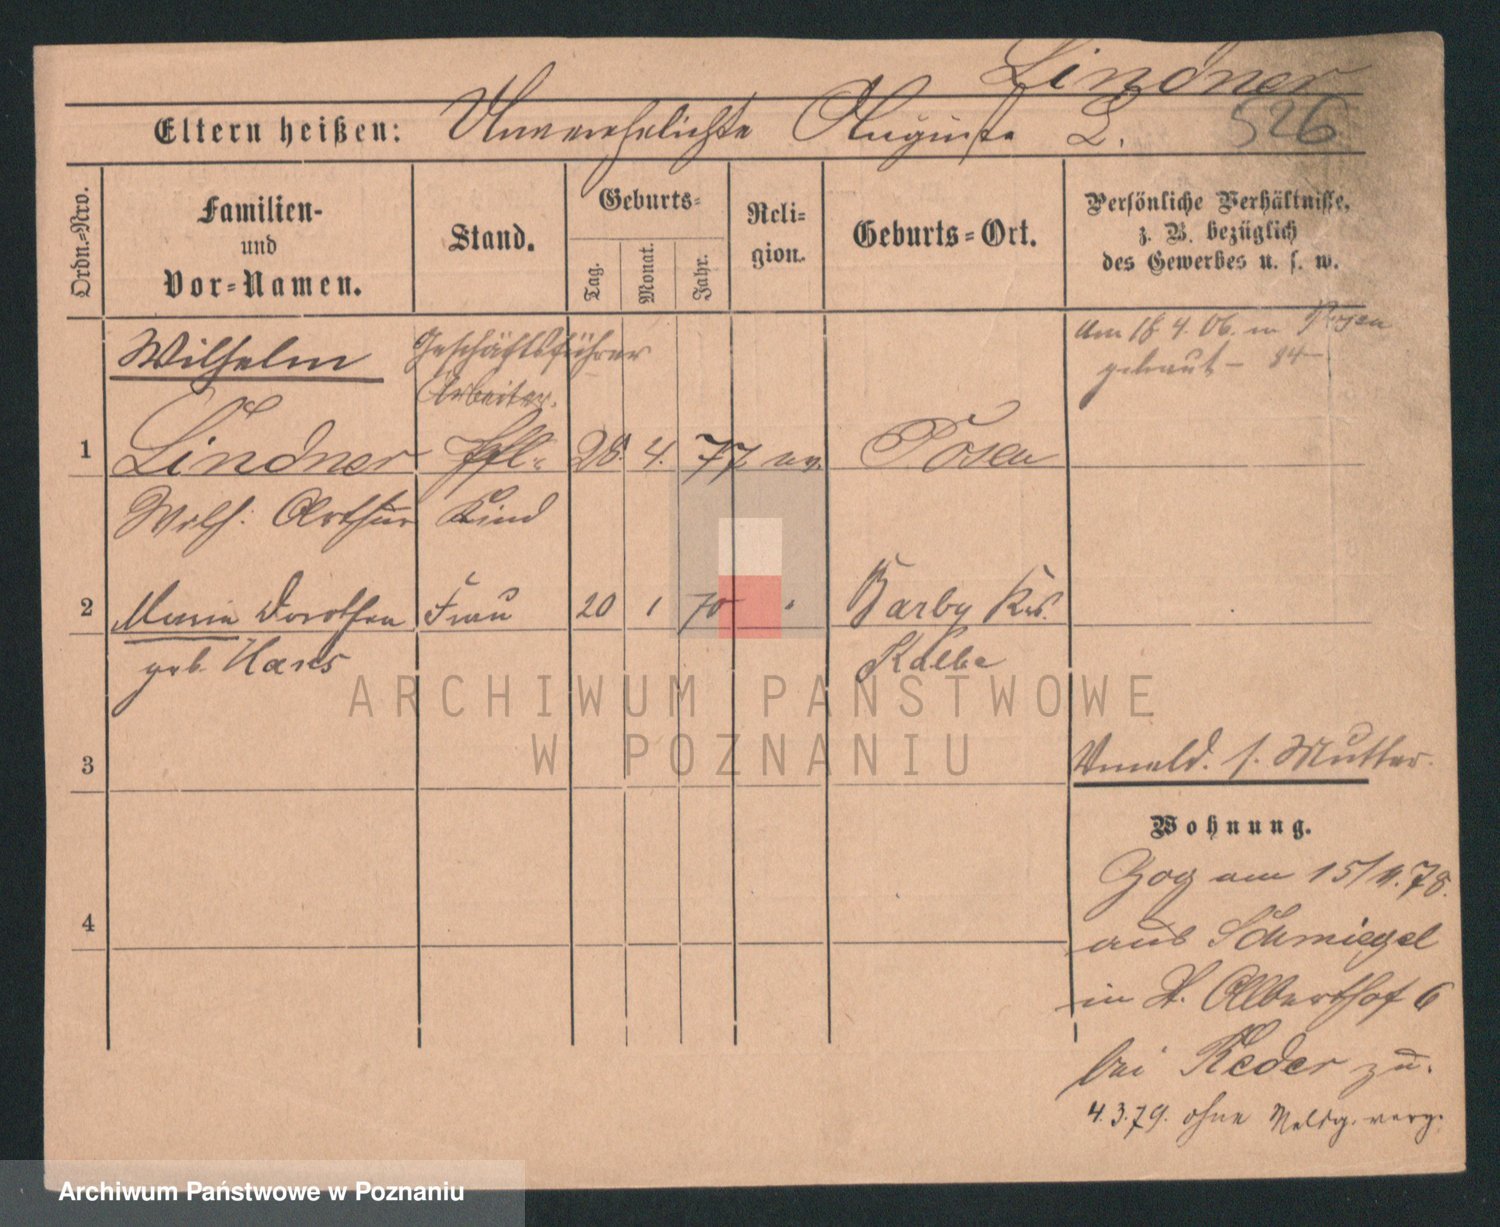 Lindner
526
Eltern heißen: Unverehelichte Auguste L.
Ordn.-Nro.
Familien-
und
Vor-Namen.
Stand.
Geburts-
Tag.
Monat.
Jahr.
Reli-
gion.
Geburts-Ort.
Persönliche Verhältnisse,
z. B. bezüglich
des Gewerbes u. s. w.
Wilhelm
Geschäftsführer
Arbeiter.
am 18. 4. 06. in Posen
getraut -
1 Lindner Pfl- 28. 4. 77. ev. Posen
Wilh: Arthur Kind
2 Marie Dorothea Frau 20 1 70 Barby Krs.
geb. Hans Kalbe
3
Vmeld. s. Mutter.
Wohnung.
Zog am 15/4. 78.
aus Schmiegel
in St. Alberthof 6
bei Reder zu.
4.3.79. ohne Meldg. verz.
4
ARCHIWUM PAŃSTWOWE
W POZNANIU
Archiwum Państwowe w Poznaniu